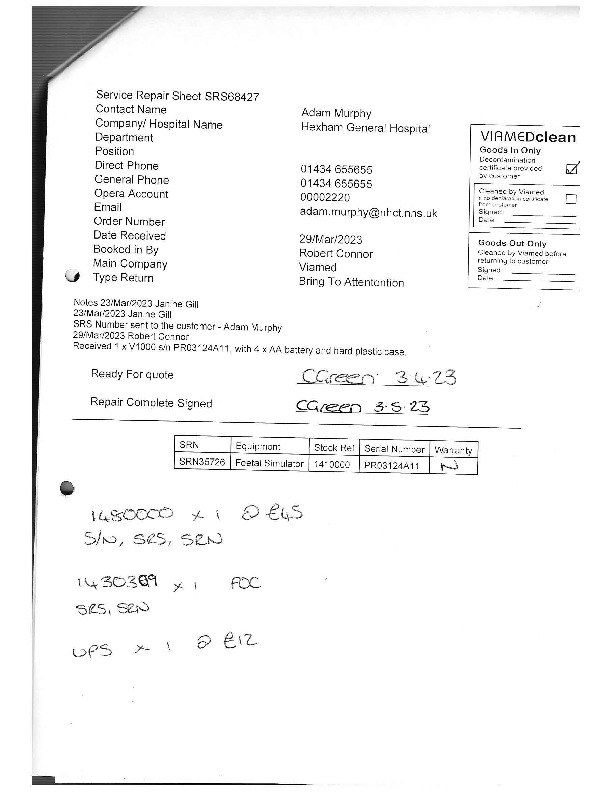 Service Repair Sheet SRS68427
Contact Name Adam Murphy
Company/ Hospital Name Hexham General Hospital
Department
Position
Direct Phone 01434 655655
General Phone 01434 655655
Opera Account 00002220
Email adam.murphy@nhct.nhs.uk
Order Number
Date Received 29/Mar/2023
Booked in By Robert Connor
Main Company Viamed
Type Return Bring To Attentontion
VIAMEDclean
Goods In Only
Decontamination
certificate provided
by customer
Cleaned by Viamed
from customer
Signed
Date
Goods Out Only
Cleaned by Viamed before
returning to customer
Signed
Date
Notes 23/Mar/2023 Janine Gill
23/Mar/2023 Janine Gill
SRS Number sent to the customer - Adam Murphy
29/Mar/2023 Robert Connor
Received 1 x V1000 s/n PR03124A11, with 4 x AA battery and hard plastic case.
Ready For quote CGreen 3.4.23
Repair Complete Signed CGreen 3.5.23
SRN Equipment Stock Ref Serial Number Warranty
SRN35726 Foetal Simulator 1410000 PR03124A11 N
1480000 x 1 @ £45
S/N, SRS, SRN
1430369 x 1 FOC
SRS, SRN
UPS x 1 @ £12